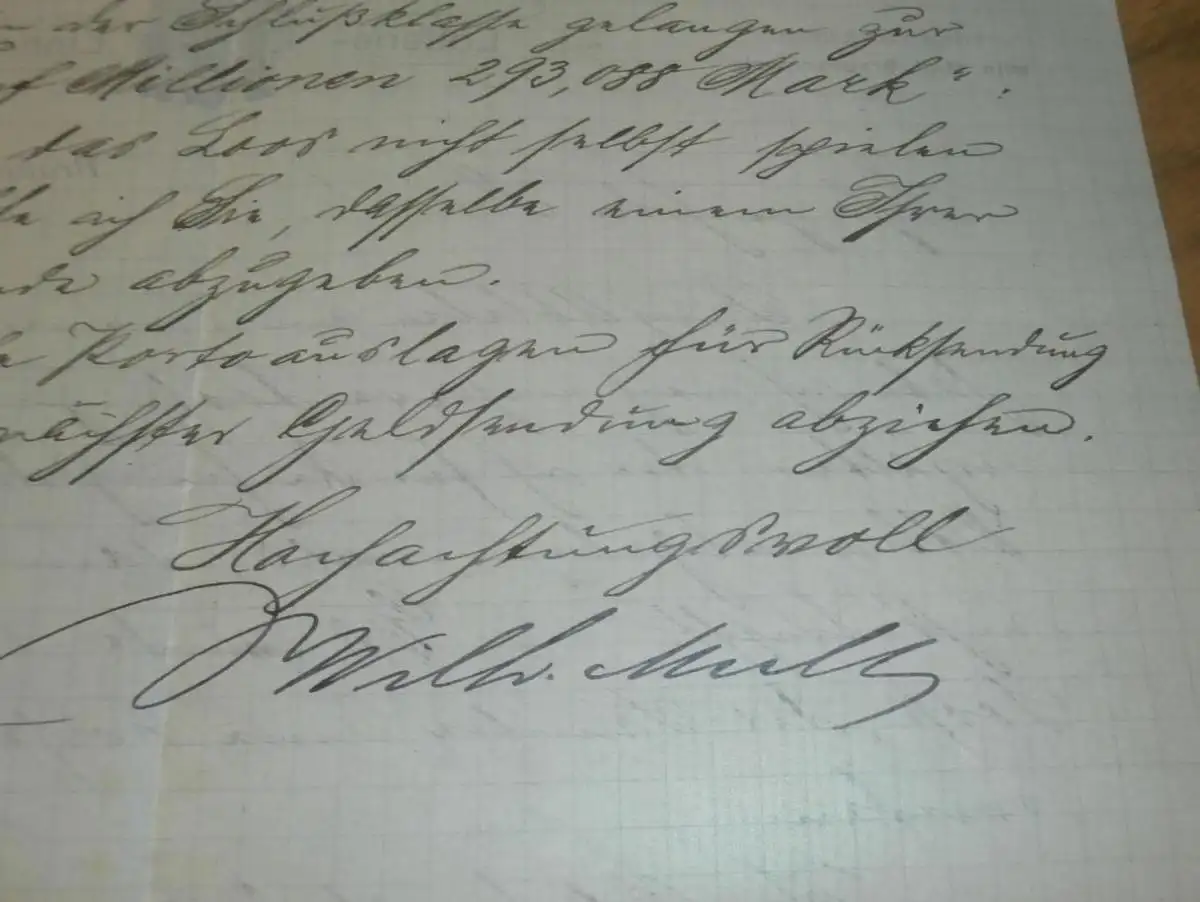 der Schlußklasse gelangen zur
Millionen 293,088 Mark".
das Loos nicht selbst spielen
ich Sie, dasselbe einem Ihrer
abzugeben.
Portoauslagen für Rücksendung
nächster Geldsendung abziehen.
Hochachtungsvoll
Wilh.